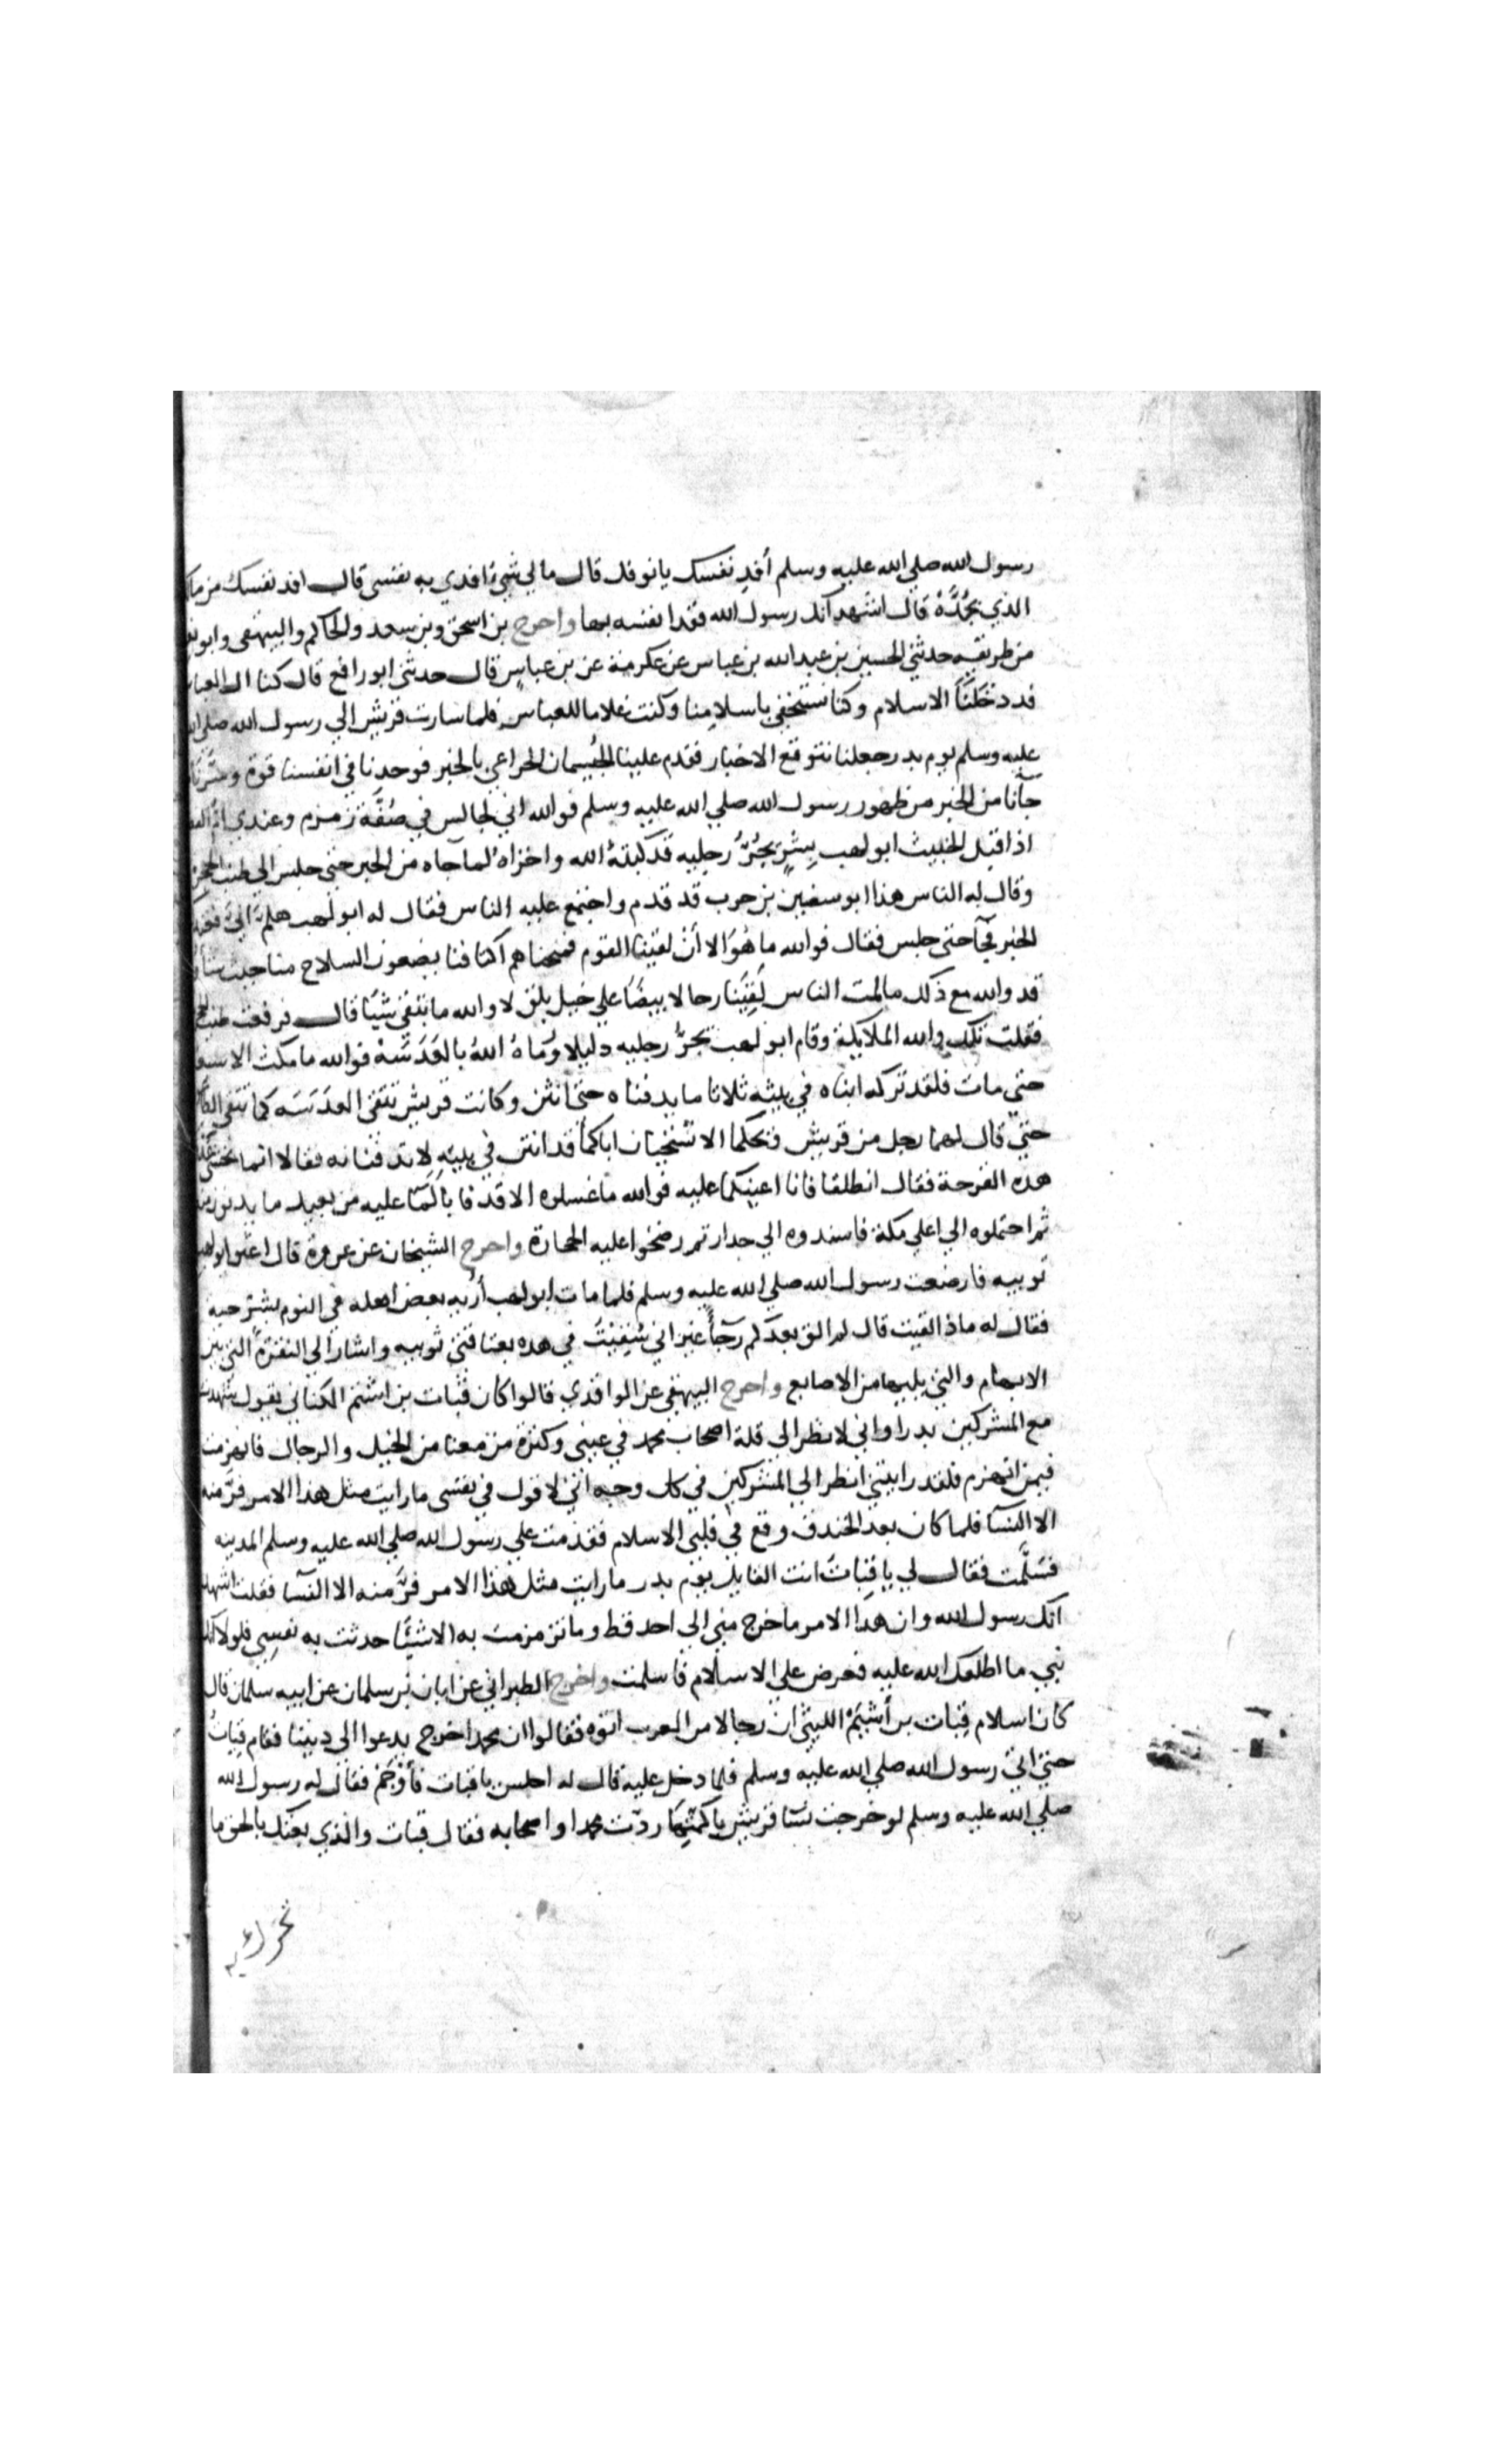 رسول الله صلي الله عليه وسلم أفدِ نفسك يا نوفل قال مالي شيءٌ افدي به نفسي قال افد نفسك من مالك
الذي بجُدَّهْ قال اشهد انك رسول الله ففدا نفسه بها واخرج بن اسحق وبن سعد والحاكم والبيهقي وابو
من طريقه حدثني الحسين بن عبد الله بن عباس عن عكرمة عن بن عباس قال حدثني ابو رافع قال كنا ال العباس
قد دخلنَا الاسلام وكنا نستخفي باسلامنا وكنت غلاما للعباس فلما سارت قريش الي رسول الله صلي
عليه وسلم يوم بدر جعلنا نتوقع الاخبار فقدم علينا الحُيسمان الخزاعي بالخبر فوجدنا في انفسنا قوة وسَرَّنا
جآنا من الخبر من ظهور رسول الله صلي الله عليه وسلم فوالله اني لجالس في صُفَّة زمزم وعندي
اذ اقبل الخبيث ابو لهب بِشرٍ يجُرُّ رجليه قد كبتهُ الله واخزاهُ لما جآه من الخبر حتي جلس الي طنب
وقال له الناس هذا ابو سفين بن حرب قد قدم واجتمع عليه الناس فقال له ابو لهب هلم اليَّ
الخبر فجآ حتى جلس فقال فوالله ما هُوَ الا أن لقينا القوم فمنحناهم اكتافنا يضعون السلاح منا حيث
قد والله مع ذلك مالمت الناس لَقِيَنا رجالا بيضاً علي خيل بلق لا والله ما تبقي شيًا قال فرفعت طنب
فقلت تلك والله الملايكة وقام ابو لهب يجرُّ رجليه دليلا ورَماهُ اللهُ بالعَدَسَهْ فوالله ما مكث الا
حتي مات فلقد تركه ابناه في بيته ثلاثا ما يدفناه حتى انثن وكانت قريش تتقي العدَسَه كما تتقي
حتي قال لهما رجل من قريش ويحكما الا تستحيان اباكما قد انتن في بيتِهِ لا تدفنانه فقالا انما نخشي
هده القرحة فقال انطلقا فانا اعينكما عليه فوالله ما غسلوه الا قدفا بالمآ عليه من بعيد ما يدنون
ثم احتملوه الي اعلي مكة فاسندوه الي جدار ثم رضخوا عليه الحجارة واخرج الشيخان عن عروة قال اعتق ابو لهب
ثويبه فارضعت رسول الله صلي الله عليه وسلم فلما مات ابو لهب أرُيه بعض اهله في النوم بشر حيبه
فقال له ماذا لقيت قال لم الق بعدكم رخآً غير اني سُقِيْتُ في هده بعتاقتي ثويبه واشار الي النقرة التي بين
الابهام والتي يليها من الاصابع واخرج البيهقي عن الواقدي قالوا كان قباث بن اشيم الكناني يقول شهدت
مع المشركين بدرا واني لانظر الي قلة اصحاب محمد في عيني وكثرة من معنا من الخيل والرجال فانهزمت
فيمن انهزم فلقد رايتني انظر الي المشركين في كل وجه اني لاقول في نفسي ما رايت مثل هذا الامر فرَّ منه
الا النسآ فلما كان بعد الخندق وقع في قلبي الاسلام فقدمت علي رسول الله صلي الله عليه وسلم المدينه
فسَلَّمت فقال لي يا قباث انت القايل يوم بدر ما رايت مثل هذا الامر فرَّ منه الا النسآ فقلت اشهد
انك رسول الله وان هدا الامر ما خرج مني الي احد قط وما تزمزمت به الا شيًا حدثت به نفسِي فلولا انك
نبي ما اطلعك الله عليه فعرض علي الاسلام فاسلمت واخرج الطبراني عن ابان بن سلمان عن ابيه سلمان قال
كان اسلام قباث بن أشيَمْ الليثي ان رجالا من العرب اتوه فقالوا ان محمدا خرج يدعوا الي ديننا فقام قباثُ
حتي اتي رسول الله صلي الله عليه وسلم فلما دخل عليه قال له اجلس يا قباث فأوجم فقال له رسول الله
صلي الله عليه وسلم لو خرجت نسآ قريش باكمتِها ردّت محمدا واصحابه فقال قباث والذي بعثك بالحق ما